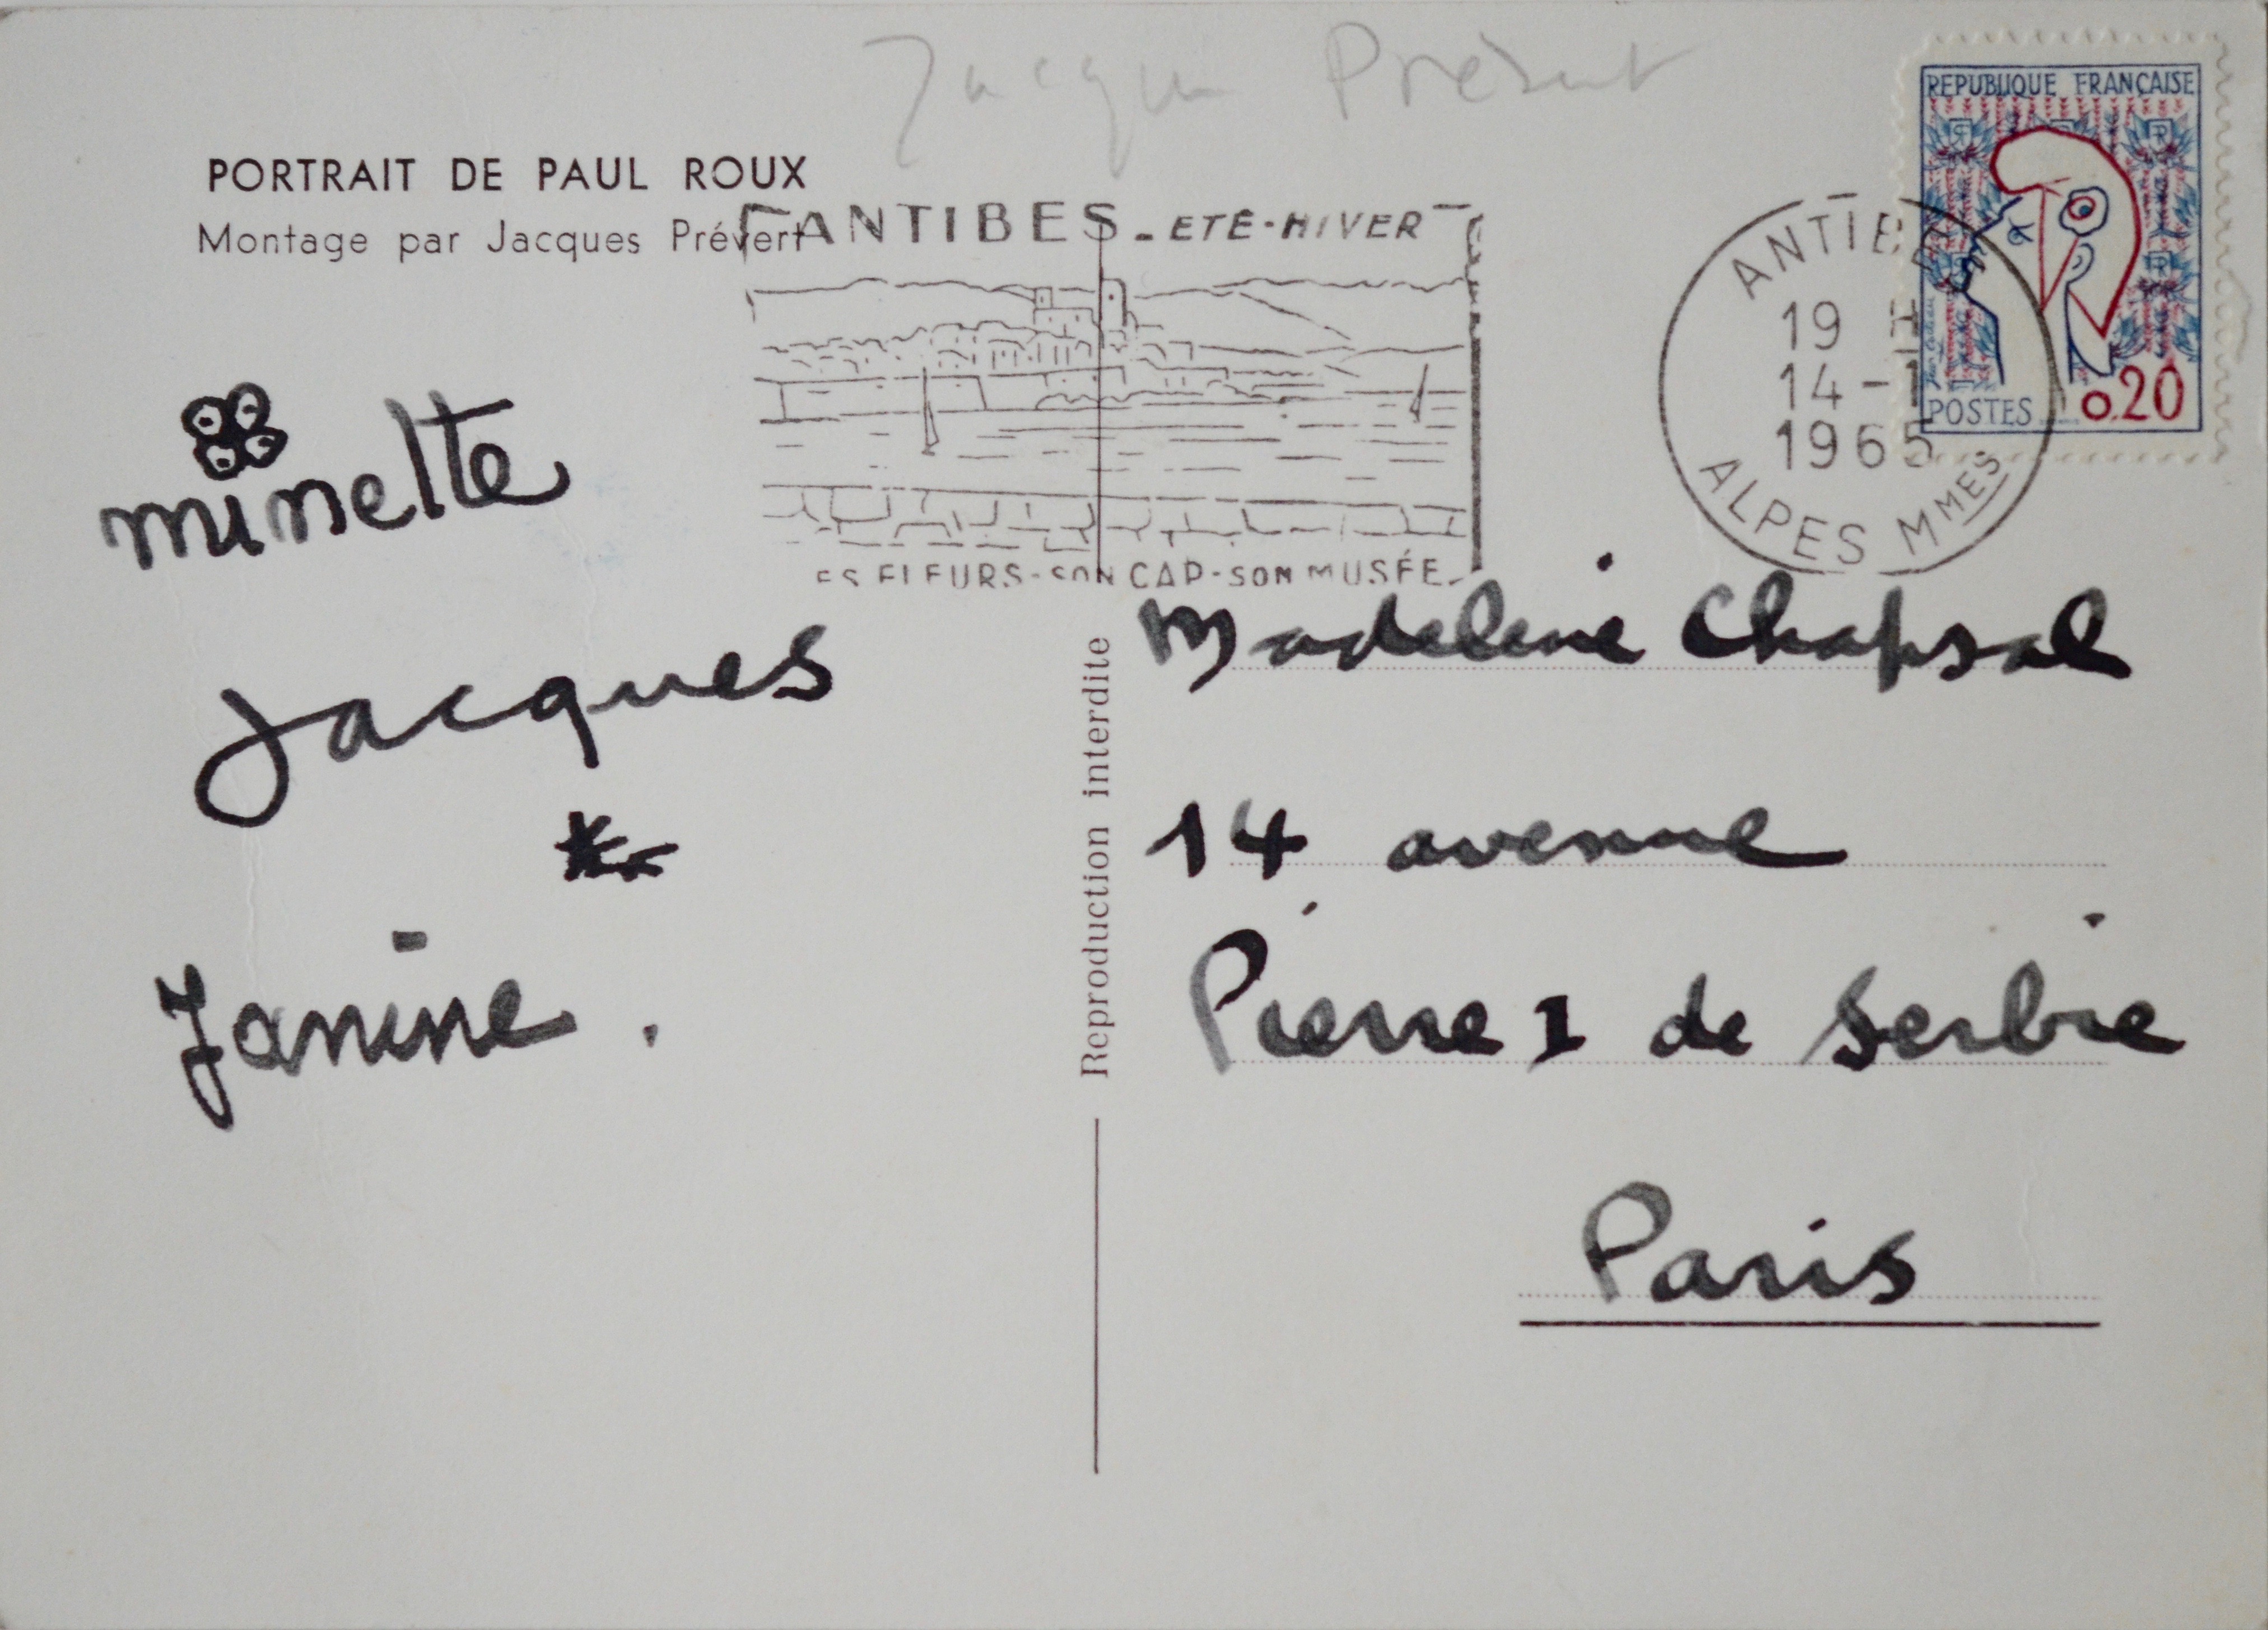 Jacques Prévert
PORTRAIT DE PAUL ROUX
Montage par Jacques Prévert
ANTIBES - ETÉ-HIVER
ES FLEURS-SON CAP-SON MUSÉE
REPUBLIQUE FRANÇAISE
POSTES 0.20
ANTIBES
19 H
14-1
1965
ALPES MMES
minette
Jacques
Janine.
Reproduction interdite
Madeleine Chapsal
14 avenue
Pierre I de Serbie
Paris